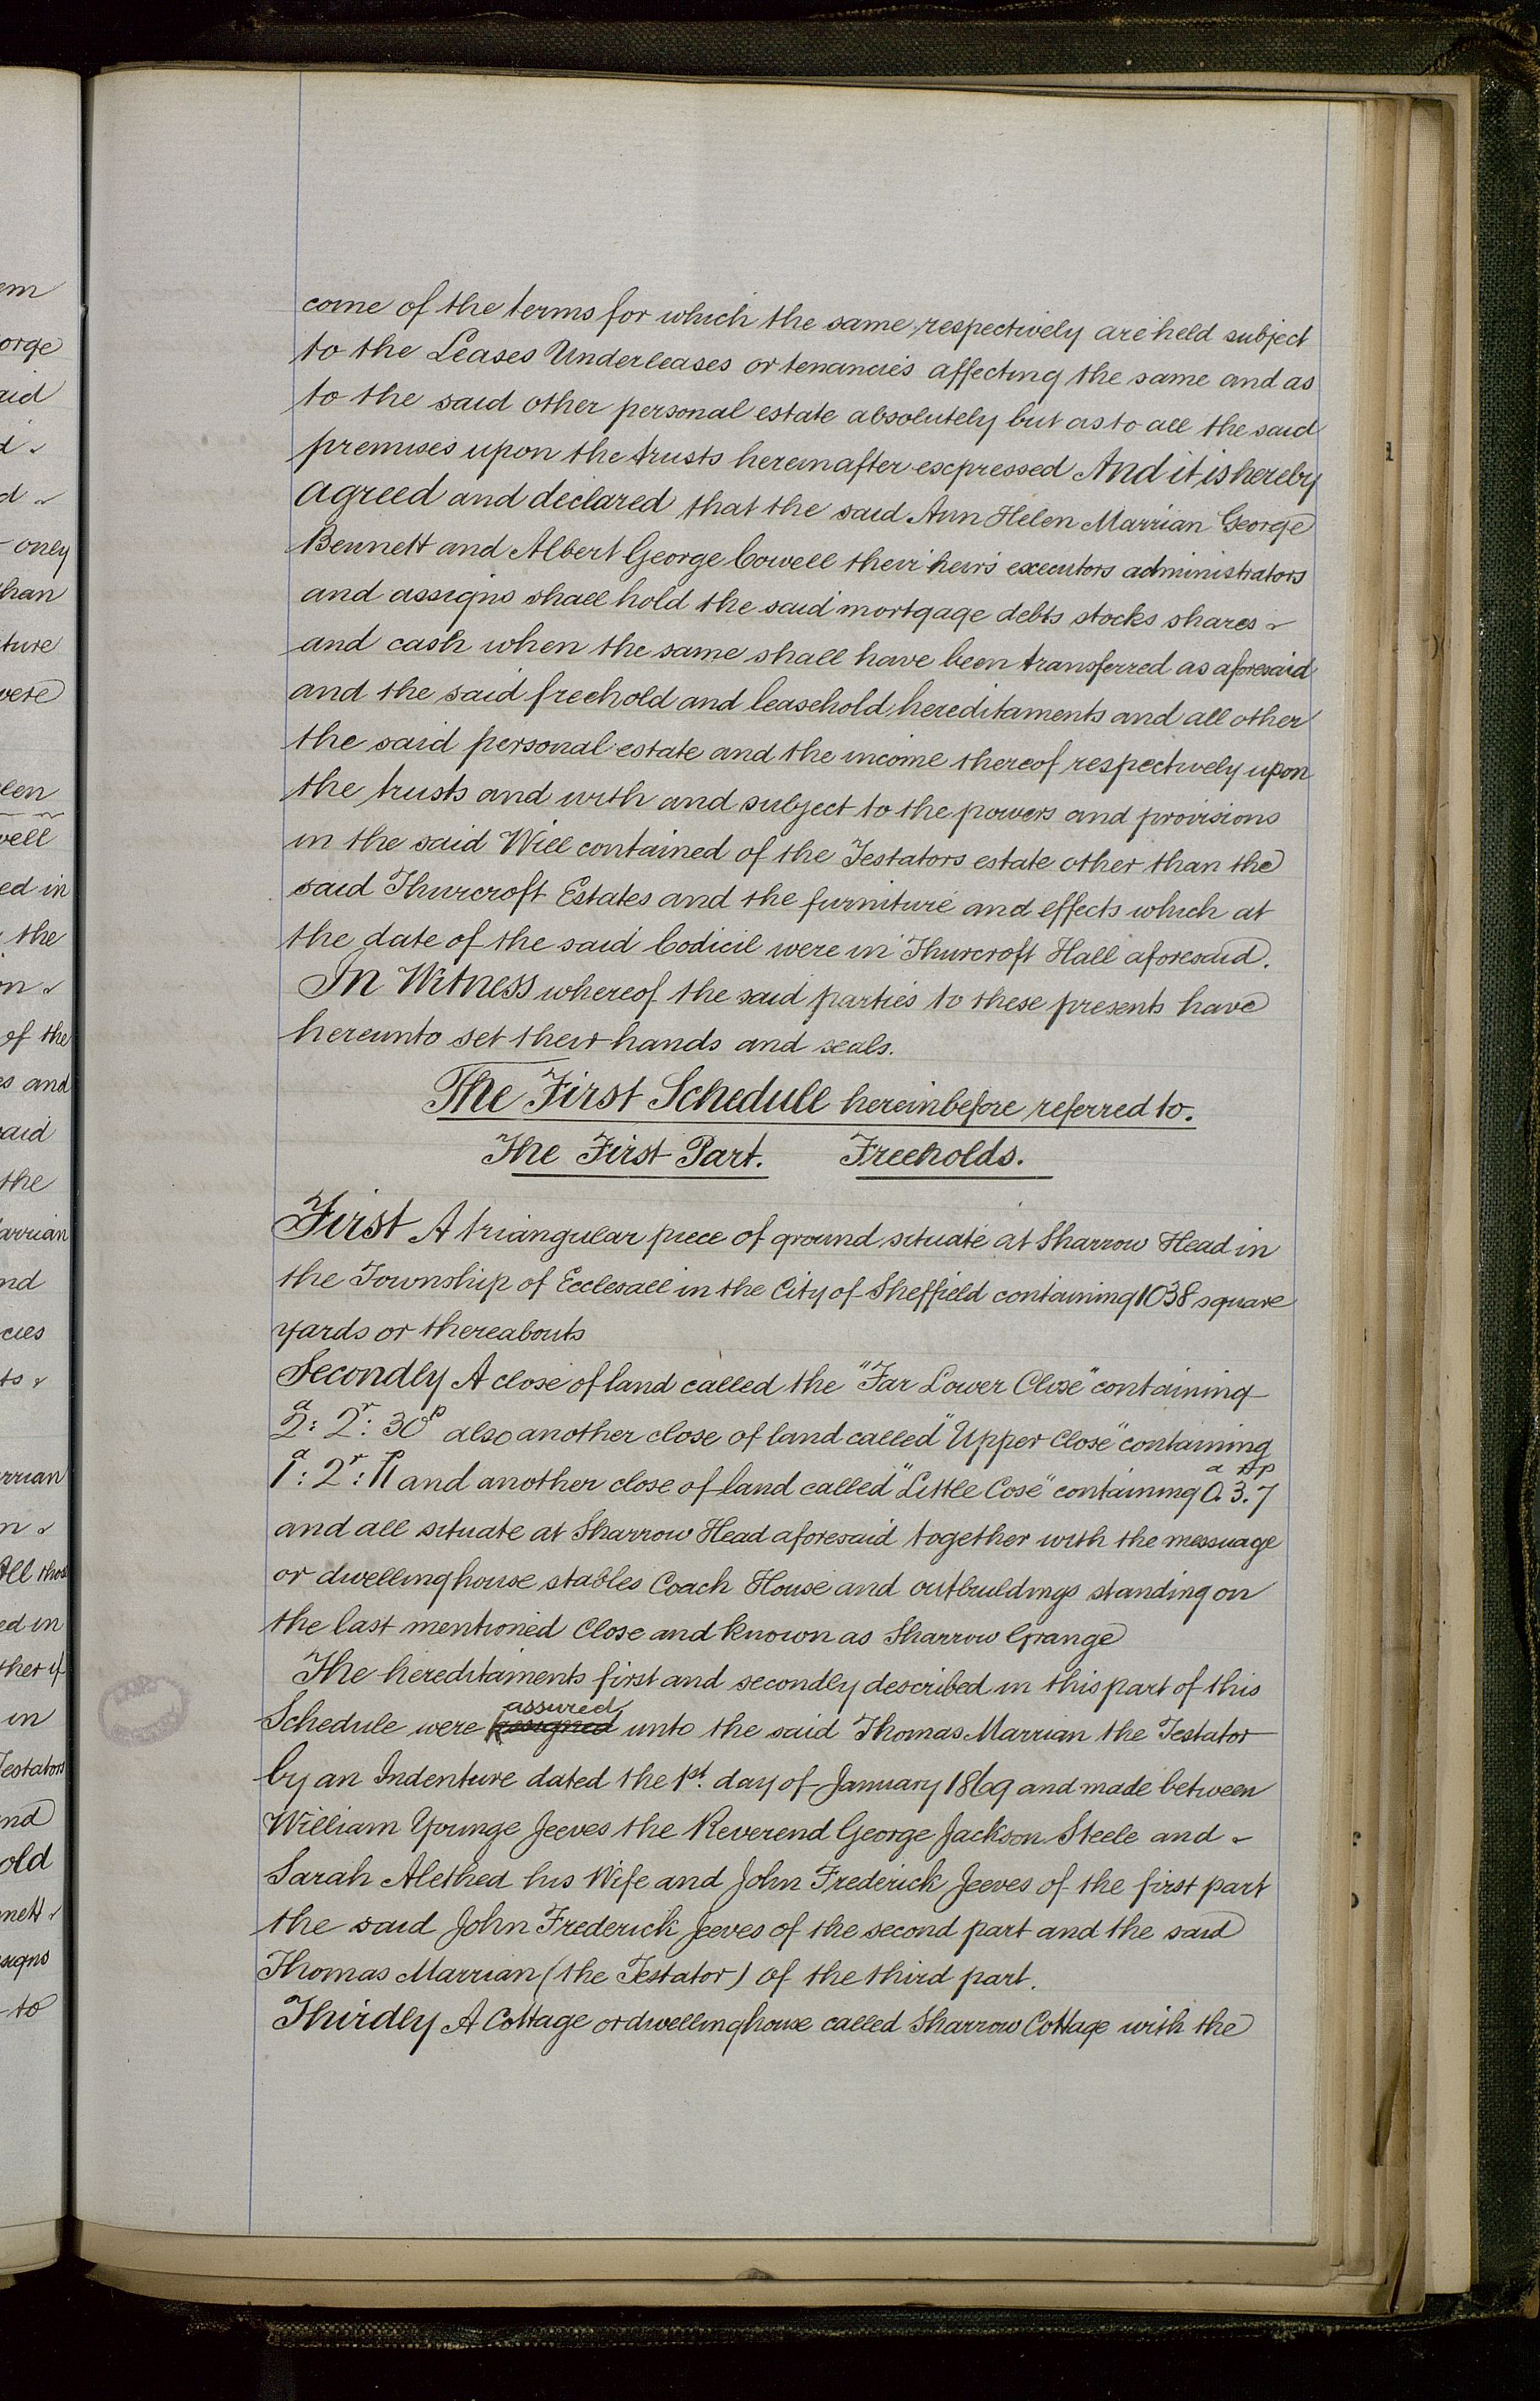 come of the terms for which the same respectively are held subject
to the Leases Underleases or tenancies affecting the same and as
to the said other personal estate absolutely but as to all the said
premises upon the trusts hereinafter expressed And it is hereby
agreed and declared that the said Ann Helen Marrian George
Bennett and Albert George Cowell their heirs executors administrators
and assigns shall hold the said mortgage debts stocks shares
and cash when the same shall have been transferred as aforesaid
and the said freehold and leasehold hereditaments and all other
the said personal estate and the income thereof respectively upon
the trusts and with and subject to the powers and provisions
in the said Will contained of the Testators estate other than the
said Thurcroft Estates and the furniture and effects which at
the date of the said Codicil were in Thurcroft Hall aforesaid.
In Witness whereof the said parties to these presents have
hereunto set their hands and seals.
The First Schedule hereinbefore referred to.
The First Part. Freeholds.
First A triangular piece of ground situate at Sharrow Head in
the Township of Ecclesall in the City of Sheffield containing 1038 square
yards or thereabouts
Secondly A close of land called the "Far Lower Close" containing
2a: 2r: 30p also another close of land called "Upper Close" containing
1a: 2r: 11p and another close of land called "Little Cose" containing 0a. 3r. 7p
and all situate at Sharrow Head aforesaid together with the messuage
or dwellinghouse stables Coach House and outbuildings standing on
the last mentioned Close and known as Sharrow Grange
The hereditaments first and secondly described in this part of this
Schedule were assigned assured unto the said Thomas Marrian the Testator
by an Indenture dated the 1st. day of January 1869 and made between
William Younge Jeeves the Reverend George Jackson Steele and
Sarah Alethed his Wife and John Frederick Jeeves of the first part
the said John Frederick Jeeves of the second part and the said
Thomas Marrian (the Testator) of the third part.
Thirdly A Cottage or dwellinghouse called Sharrow Cottage with the